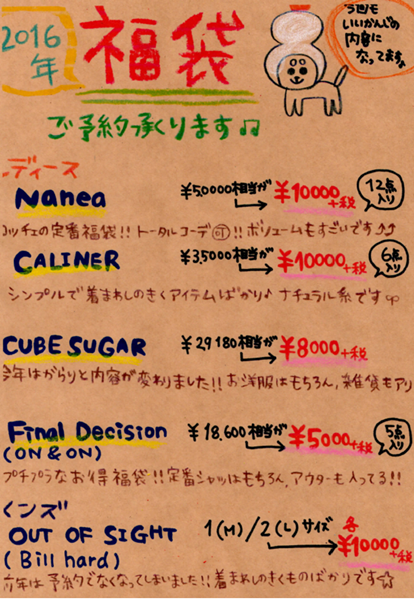 2016年
福袋
今年も
いいかんじの
内容に
なってます♪
ご予約承ります♫
ディース
Nanea ¥50000相当が→¥10000+税 12点入り
コッチェの定番福袋!! トータルコーデ可!! ボリュームもすごいです♪♪
CALINER ¥35000相当が→¥10000+税 6点入り
シンプルで着まわしのきくアイテムばかり♪ ナチュラル系です
CUBE SUGAR ¥29180相当が→¥8000+税
今年はがらりと内容が変わりました!! お洋服はもちろん、雑貨もアリ
Final Decision ¥18.600相当が→¥5000+税 5点入り
(ON & ON)
プチプラなお得福袋!! 定番シャツはもちろん、アウターも入ってる!!
ンズ
OUT OF SIGHT 1(M)/2(L)サイズ 各
(Bill hard) →¥10000+税
年は予約でなくなってしまいました!! 着まわしのきくものばかりです☆